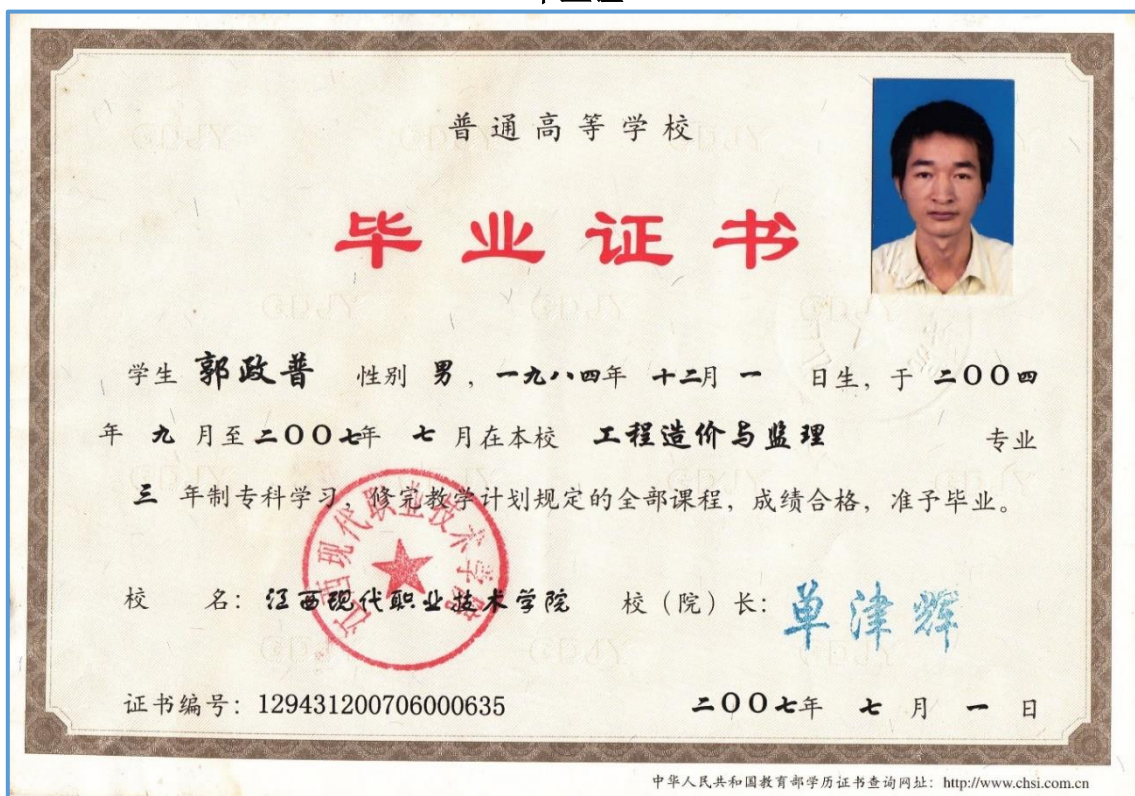 普通高等学校
毕业证书
学生 郭政普 性别 男，一九八四年 十二月 一 日生，于 二〇〇四
年 九 月至 二〇〇七年 七 月在本校 工程造价与监理 专业
三 年制专科学习，修完教学计划规定的全部课程，成绩合格，准予毕业。
江西现代职业技术学院
校 名：江西现代职业技术学院 校（院）长：单津辉
证书编号：129431200706000635 二〇〇七年 七 月 一 日
中华人民共和国教育部学历证书查询网址：http://www.chsi.com.cn